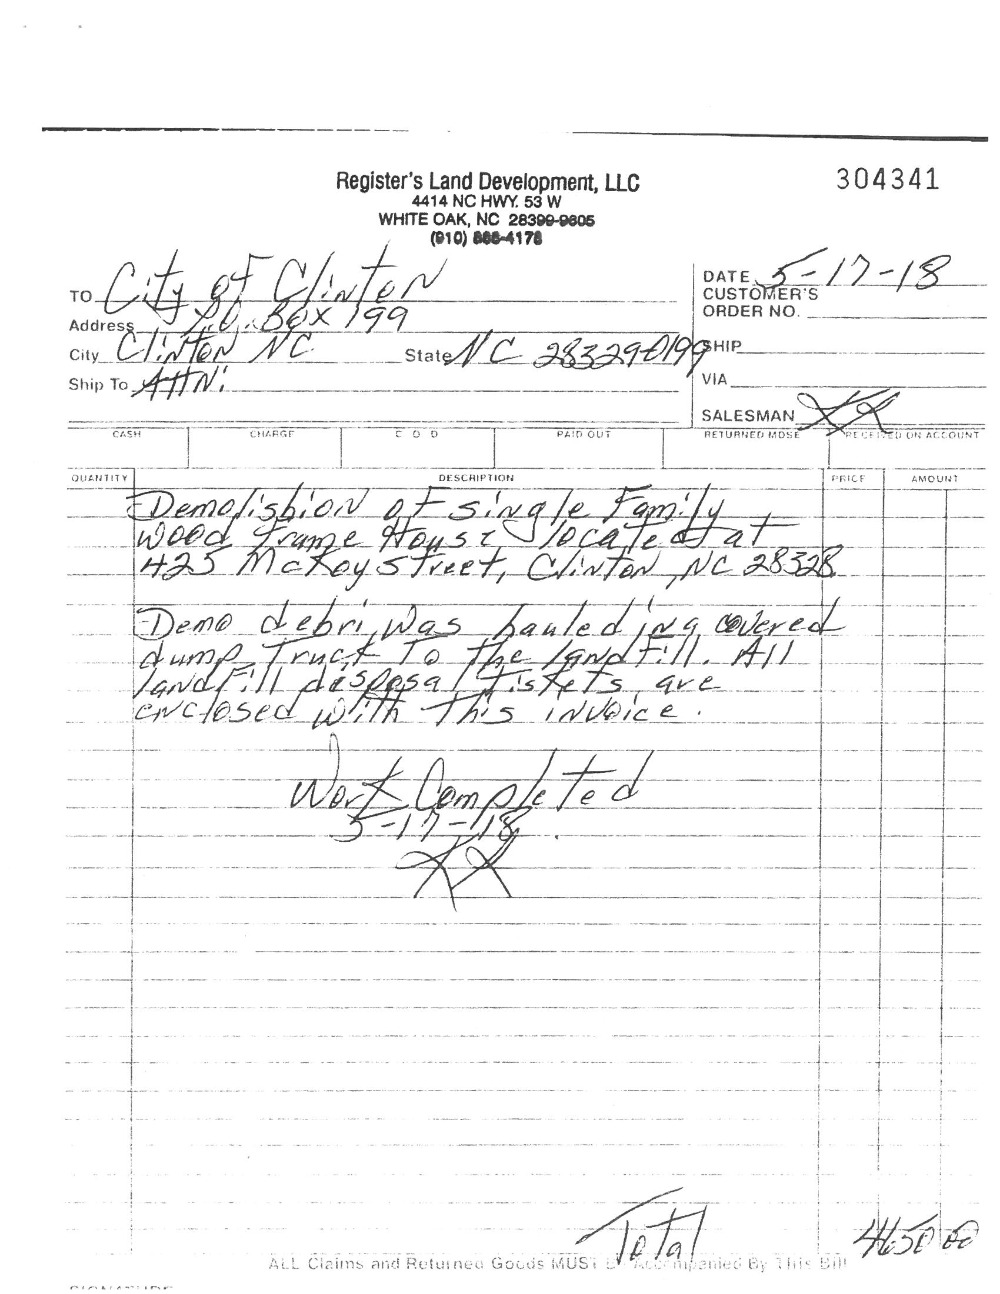 Register's Land Development, LLC
304341
4414 NC HWY. 53 W
WHITE OAK, NC 28399-9605
(910) 866-4178
TO City of Clinton
DATE 5-17-18
CUSTOMER'S
ORDER NO.
Address P.O. Box 199
City Clinton NC State NC 28329-0199
SHIP
Ship To Attn:
VIA
SALESMAN
CASH CHARGE C O D PAID OUT RETURNED MDSE RECEIVED ON ACCOUNT
QUANTITY DESCRIPTION PRICE AMOUNT
Demolishion of single Family
wood Frame House located at
425 McKoy street, Clinton, NC 28328
Demo debri was hauled in a covered
dump Truck To The landfill. All
landfill disposal tickets are
enclosed with This invoice.
Work Completed
5-17-18.
Total 4650 00
ALL Claims and Returned Goods MUST Be Accompanied By This Bill
SIGNATURE